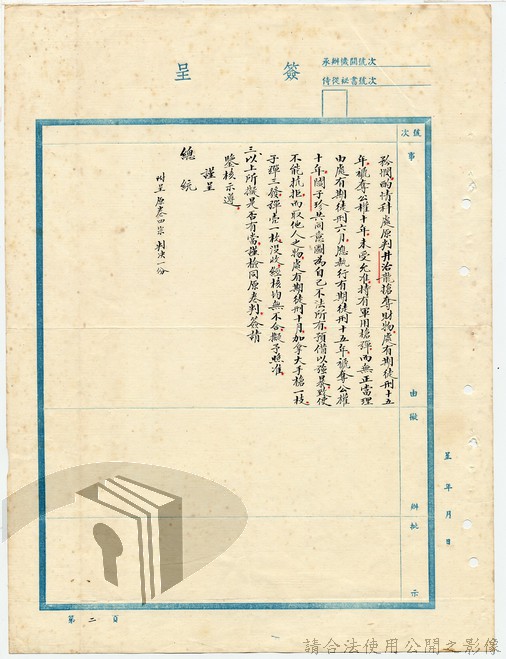 簽呈
承辦機關號次
侍從祕書號次
號次
事由
擬辦
批示
呈 年 月 日
矜憫酌情科處原判井治龍搶奪財物處有期徒刑十五
年褫奪公權十年未受允准持有軍用槍彈而無正當理
由處有期徒刑六月應執行有期徒刑十五年褫奪公權
十年關子珍共同意圖為自己不法所有預備以強暴致使
不能抗拒而取他人之物處有期徒刑十月加拿大手槍一枝
子彈三發彈壳一枚沒收經核均無不合擬予照准
三以上所擬是否有當謹檢同原卷判簽請
鑒核示遵
謹呈
總統
附呈原卷四宗判決一份
第二頁
請合法使用公開之影像